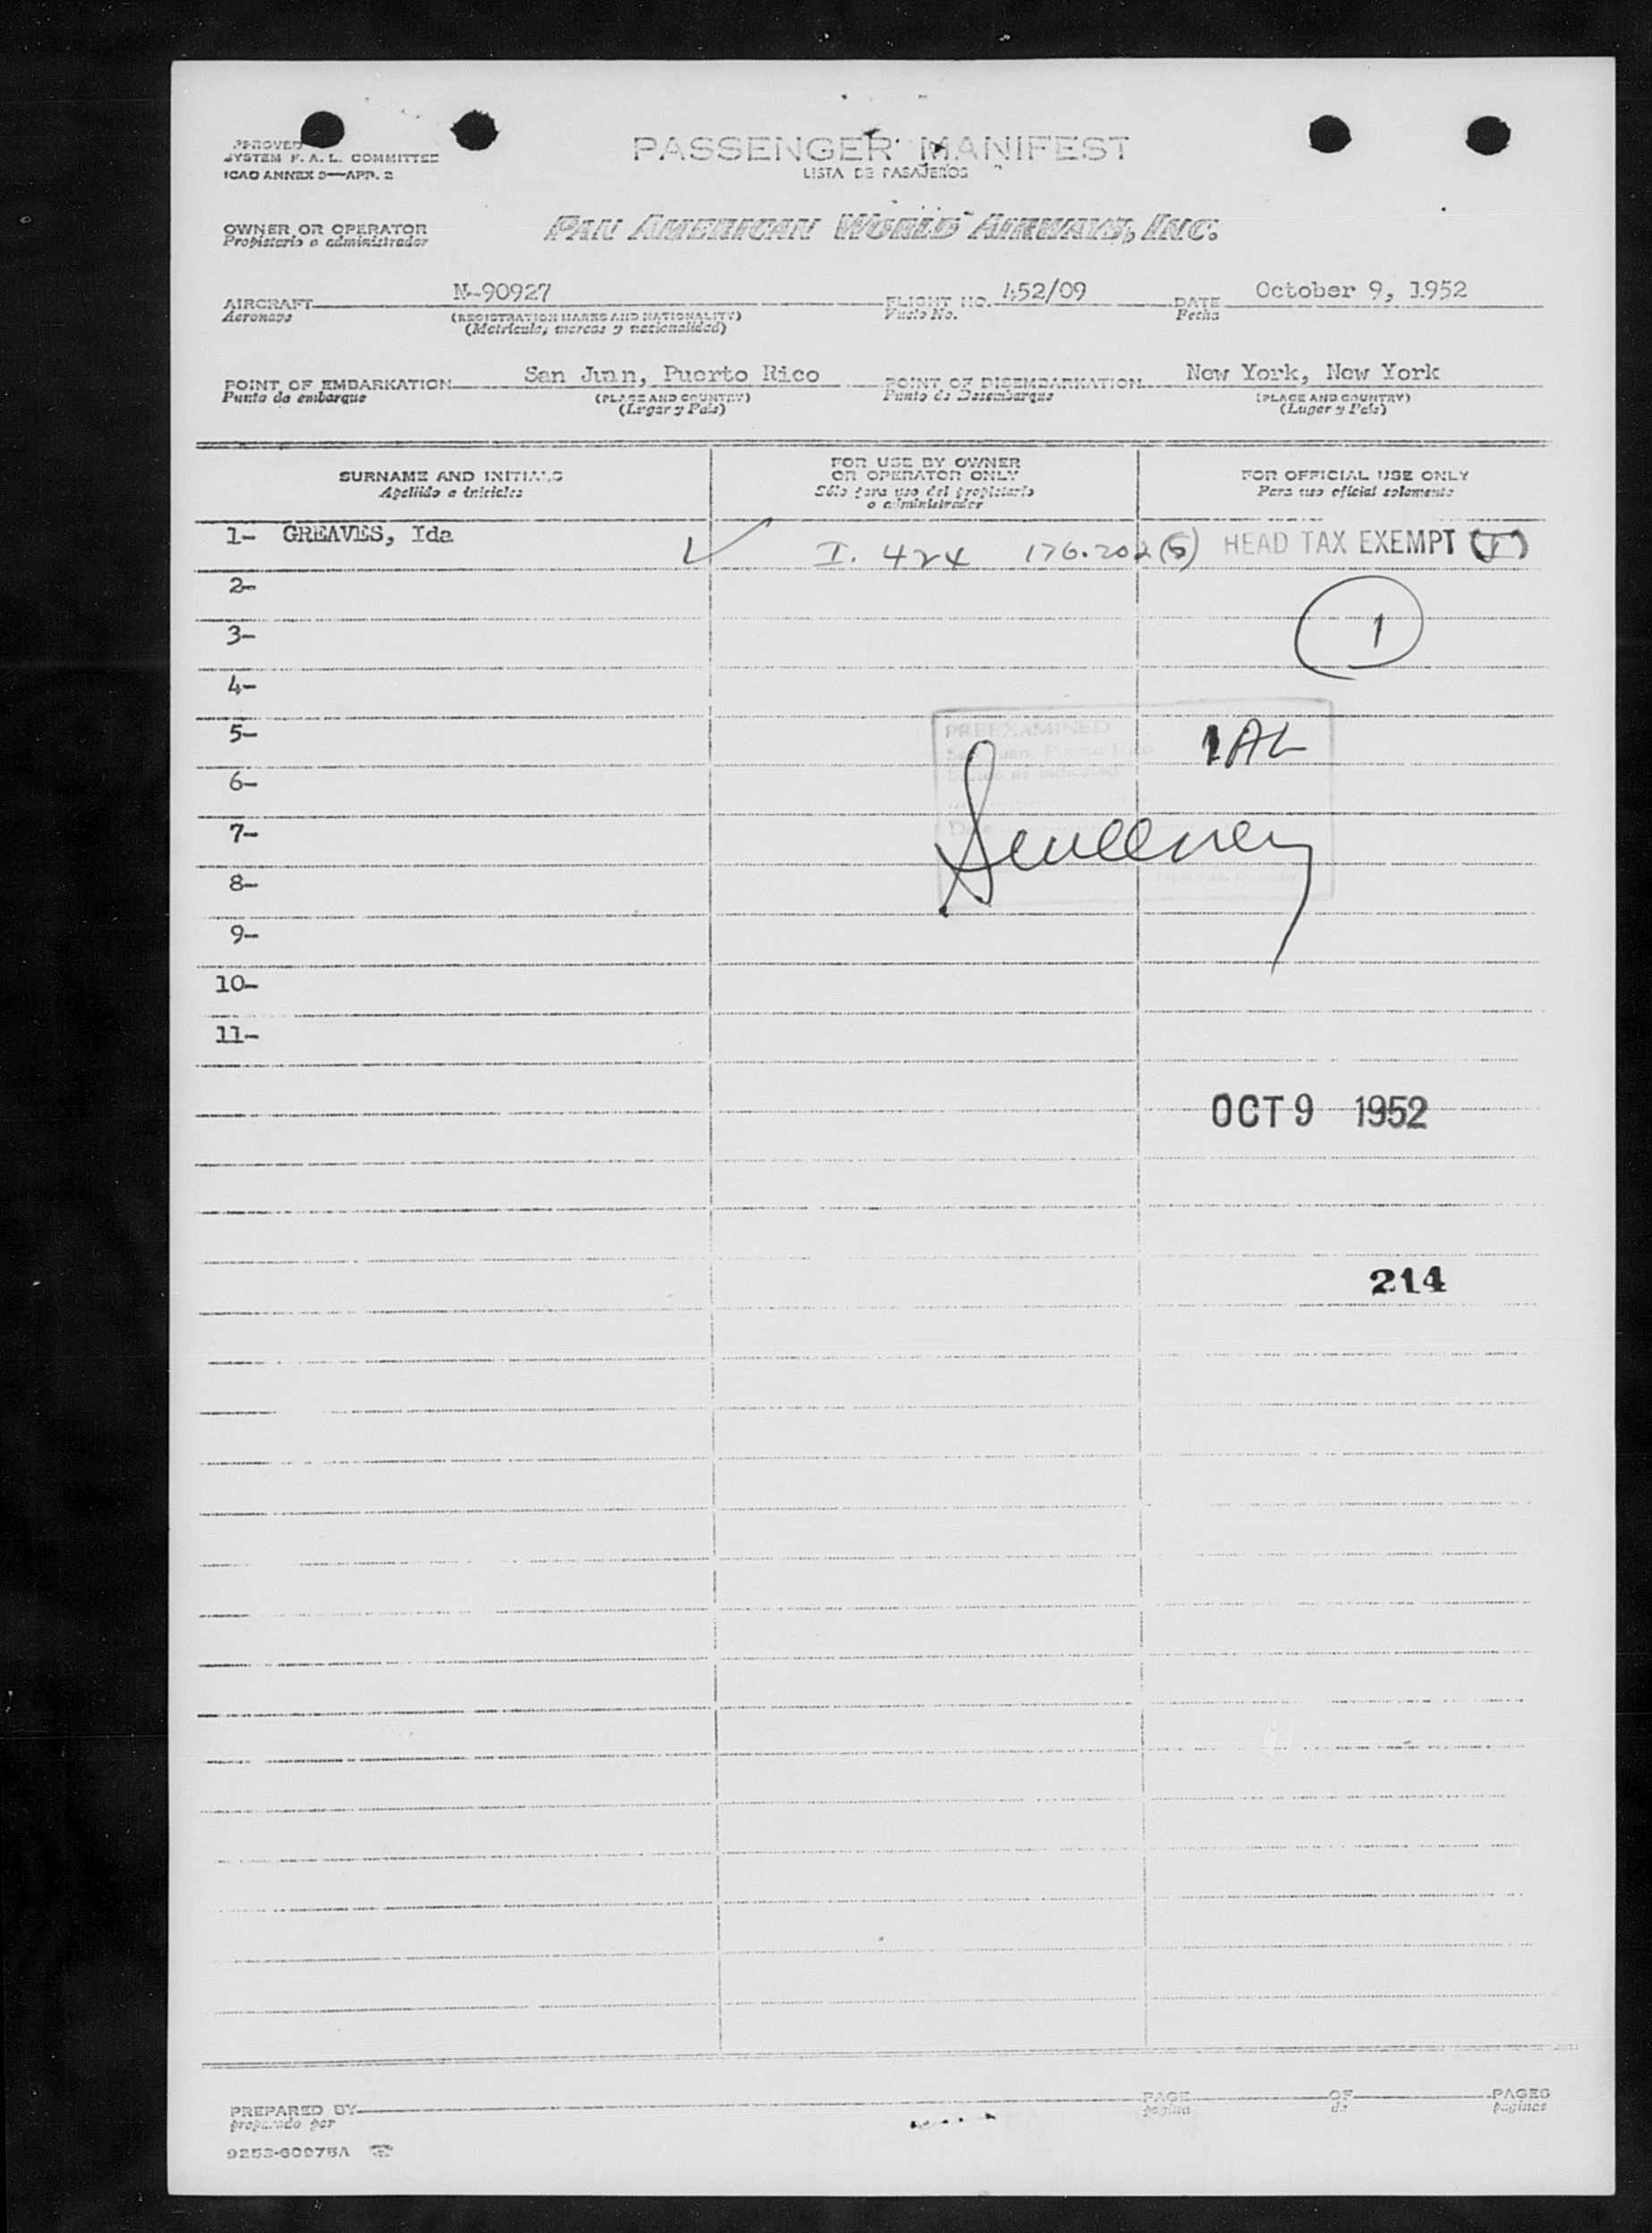 PASSENGER MANIFEST
LISTA DE PASAJEROS
APPROVED
SYSTEM F. A. L. COMMITTEE
ICAO ANNEX 9—APP. 2
OWNER OR OPERATOR
Propietario o administrador
PAN AMERICAN WORLD AIRWAYS, INC.
AIRCRAFT N-90927 FLIGHT NO. 452/09 DATE October 9, 1952
Aeronave (REGISTRATION MARKS AND NATIONALITY) Vuelo No. Fecha
(Matrícula, marcas y nacionalidad)
POINT OF EMBARKATION San Juan, Puerto Rico POINT OF DISEMBARKATION New York, New York
Punto de embarque (PLACE AND COUNTRY) Punto de Desembarque (PLACE AND COUNTRY)
(Lugar y País) (Lugar y País)
SURNAME AND INITIALS
Apellido e iniciales
FOR USE BY OWNER
OR OPERATOR ONLY
Sólo para uso del propietario
o administrador
FOR OFFICIAL USE ONLY
Para uso oficial solamente
1- GREAVES, Ida I. 424 176.202(5) HEAD TAX EXEMPT (I)
2-
3- 1
4-
5- 1AL
PREEXAMINED
San Juan, Puerto Rico
Status as indicated
6-
7-
Date
Sweeney
8-
9-
10-
11-
OCT 9 1952
214
PREPARED BY PAGE OF PAGES
preparado por página de páginas
9253-60975A